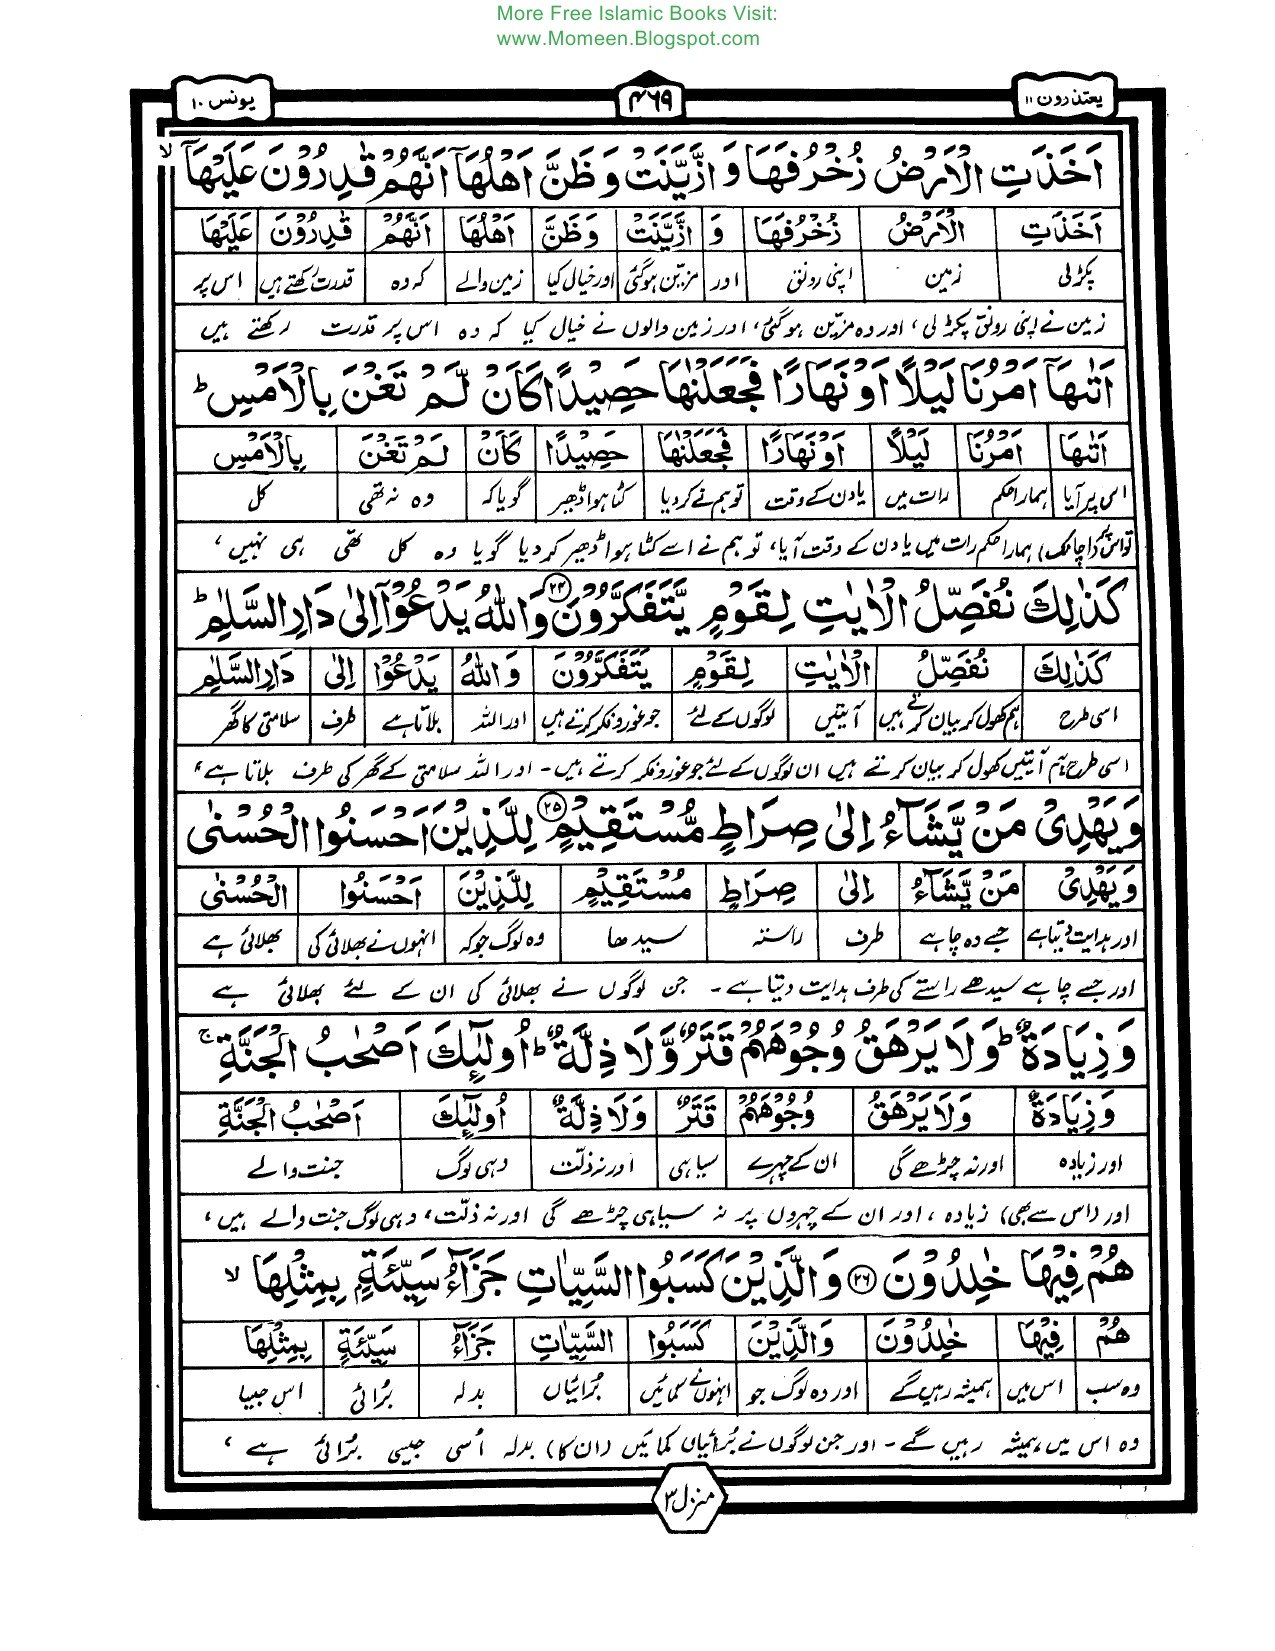 More Free Islamic Books Visit:
www.Momeen.Blogspot.com
یعتذرون ۱۱
۴۶۹
یونس ۱۰
اَخَذَتِ الْاَرْضُ زُخْرُفَهَا وَ ازَّیَّنَتْ وَ ظَنَّ اَهْلُهَاۤ اَنَّهُمْ قٰدِرُوْنَ عَلَیْهَاۤ ۙ
اَخَذَتِ الْاَرْضُ زُخْرُفَهَا وَ ازَّیَّنَتْ وَ ظَنَّ اَهْلُهَا اَنَّهُمْ قٰدِرُوْنَ عَلَیْهَا
پکڑلی زمین اپنی رونق اور مزیّن ہوگئی اور خیال کیا زمین والے کہ وہ قدرت رکھتے ہیں اس پر
زمین نے اپنی رونق پکڑ لی، اور وہ مزیّن ہوگئی، اور زمین والوں نے خیال کیا کہ وہ اس پر قدرت رکھتے ہیں
اَتٰىهَاۤ اَمْرُنَا لَیْلًا اَوْ نَهَارًا فَجَعَلْنٰهَا حَصِیْدًا كَاَنْ لَّمْ تَغْنَ بِالْاَمْسِ ؕ
اَتٰىهَا اَمْرُنَا لَیْلًا اَوْ نَهَارًا فَجَعَلْنٰهَا حَصِیْدًا كَاَنْ لَمْ تَغْنَ بِالْاَمْسِ
اس پر آیا ہمارا حکم رات میں یا دن کے وقت تو ہم نے کردیا کٹا ہوا ڈھیر گویا کہ وہ نہ تھی کل
تو اس پر (اچانک) ہمارا حکم رات میں یا دن کے وقت آیا، تو ہم نے اسے کٹا ہوا ڈھیر کر دیا گویا وہ کل تھی ہی نہیں،
كَذٰلِكَ نُفَصِّلُ الْاٰیٰتِ لِقَوْمٍ یَّتَفَكَّرُوْنَ ۝۲۴ وَ اللّٰهُ یَدْعُوْۤا اِلٰى دَارِ السَّلٰمِ ؕ
كَذٰلِكَ نُفَصِّلُ الْاٰیٰتِ لِقَوْمٍ یَتَفَكَّرُوْنَ وَ اللّٰهُ یَدْعُوْا اِلٰى دَارِ السَّلٰمِ
اسی طرح ہم کھول کر بیان کرتے ہیں آیتیں لوگوں کے لئے جو غور و فکر کرتے ہیں اور اللہ بلاتا ہے طرف سلامتی کا گھر
اسی طرح ہم آیتیں کھول کر بیان کرتے ہیں ان لوگوں کے لئے جو غور و فکر کرتے ہیں۔ اور اللہ سلامتی کے گھر کی طرف بلاتا ہے،
وَ یَهْدِیْ مَنْ یَّشَآءُ اِلٰى صِرَاطٍ مُّسْتَقِیْمٍ ۝۲۵ لِلَّذِیْنَ اَحْسَنُوا الْحُسْنٰى
وَ یَهْدِیْ مَنْ یَّشَآءُ اِلٰى صِرَاطٍ مُسْتَقِیْمٍ لِلَّذِیْنَ اَحْسَنُوا الْحُسْنٰى
اور ہدایت دیتا ہے جسے وہ چاہے طرف راستہ سیدھا وہ لوگ جو کہ انہوں نے بھلائی کی بھلائی ہے
اور جسے چاہے سیدھے راستے کی طرف ہدایت دیتا ہے۔ جن لوگوں نے بھلائی کی ان کے لئے بھلائی ہے
وَ زِیَادَةٌ ؕ وَ لَا یَرْهَقُ وُجُوْهَهُمْ قَتَرٌ وَّ لَا ذِلَّةٌ ؕ اُولٰٓىِٕكَ اَصْحٰبُ الْجَنَّةِ ۚ
وَ زِیَادَةٌ وَ لَا یَرْهَقُ وُجُوْهَهُمْ قَتَرٌ وَ لَا ذِلَّةٌ اُولٰٓىِٕكَ اَصْحٰبُ الْجَنَّةِ
اور زیادہ اور نہ چڑھے گی ان کے چہرے سیاہی اور نہ ذلّت وہی لوگ جنت والے
اور (اس سے بھی) زیادہ، اور ان کے چہروں پر نہ سیاہی چڑھے گی اور نہ ذلّت، وہی لوگ جنت والے ہیں،
هُمْ فِیْهَا خٰلِدُوْنَ ۝۲۶ وَ الَّذِیْنَ كَسَبُوا السَّیِّاٰتِ جَزَآءُ سَیِّئَةٍۭ بِمِثْلِهَا ۙ
هُمْ فِیْهَا خٰلِدُوْنَ وَ الَّذِیْنَ كَسَبُوا السَّیِّاٰتِ جَزَآءُ سَیِّئَةٍ بِمِثْلِهَا
وہ سب اس میں ہمیشہ رہیں گے اور وہ لوگ جو انہوں نے کمائیں بُرائیاں بدلہ بُرائی اس جیسا
وہ اس میں ہمیشہ رہیں گے۔ اور جن لوگوں نے بُرائیاں کمائیں (ان کا) بدلہ اُسی جیسی بُرائی ہے،
منزل ۳